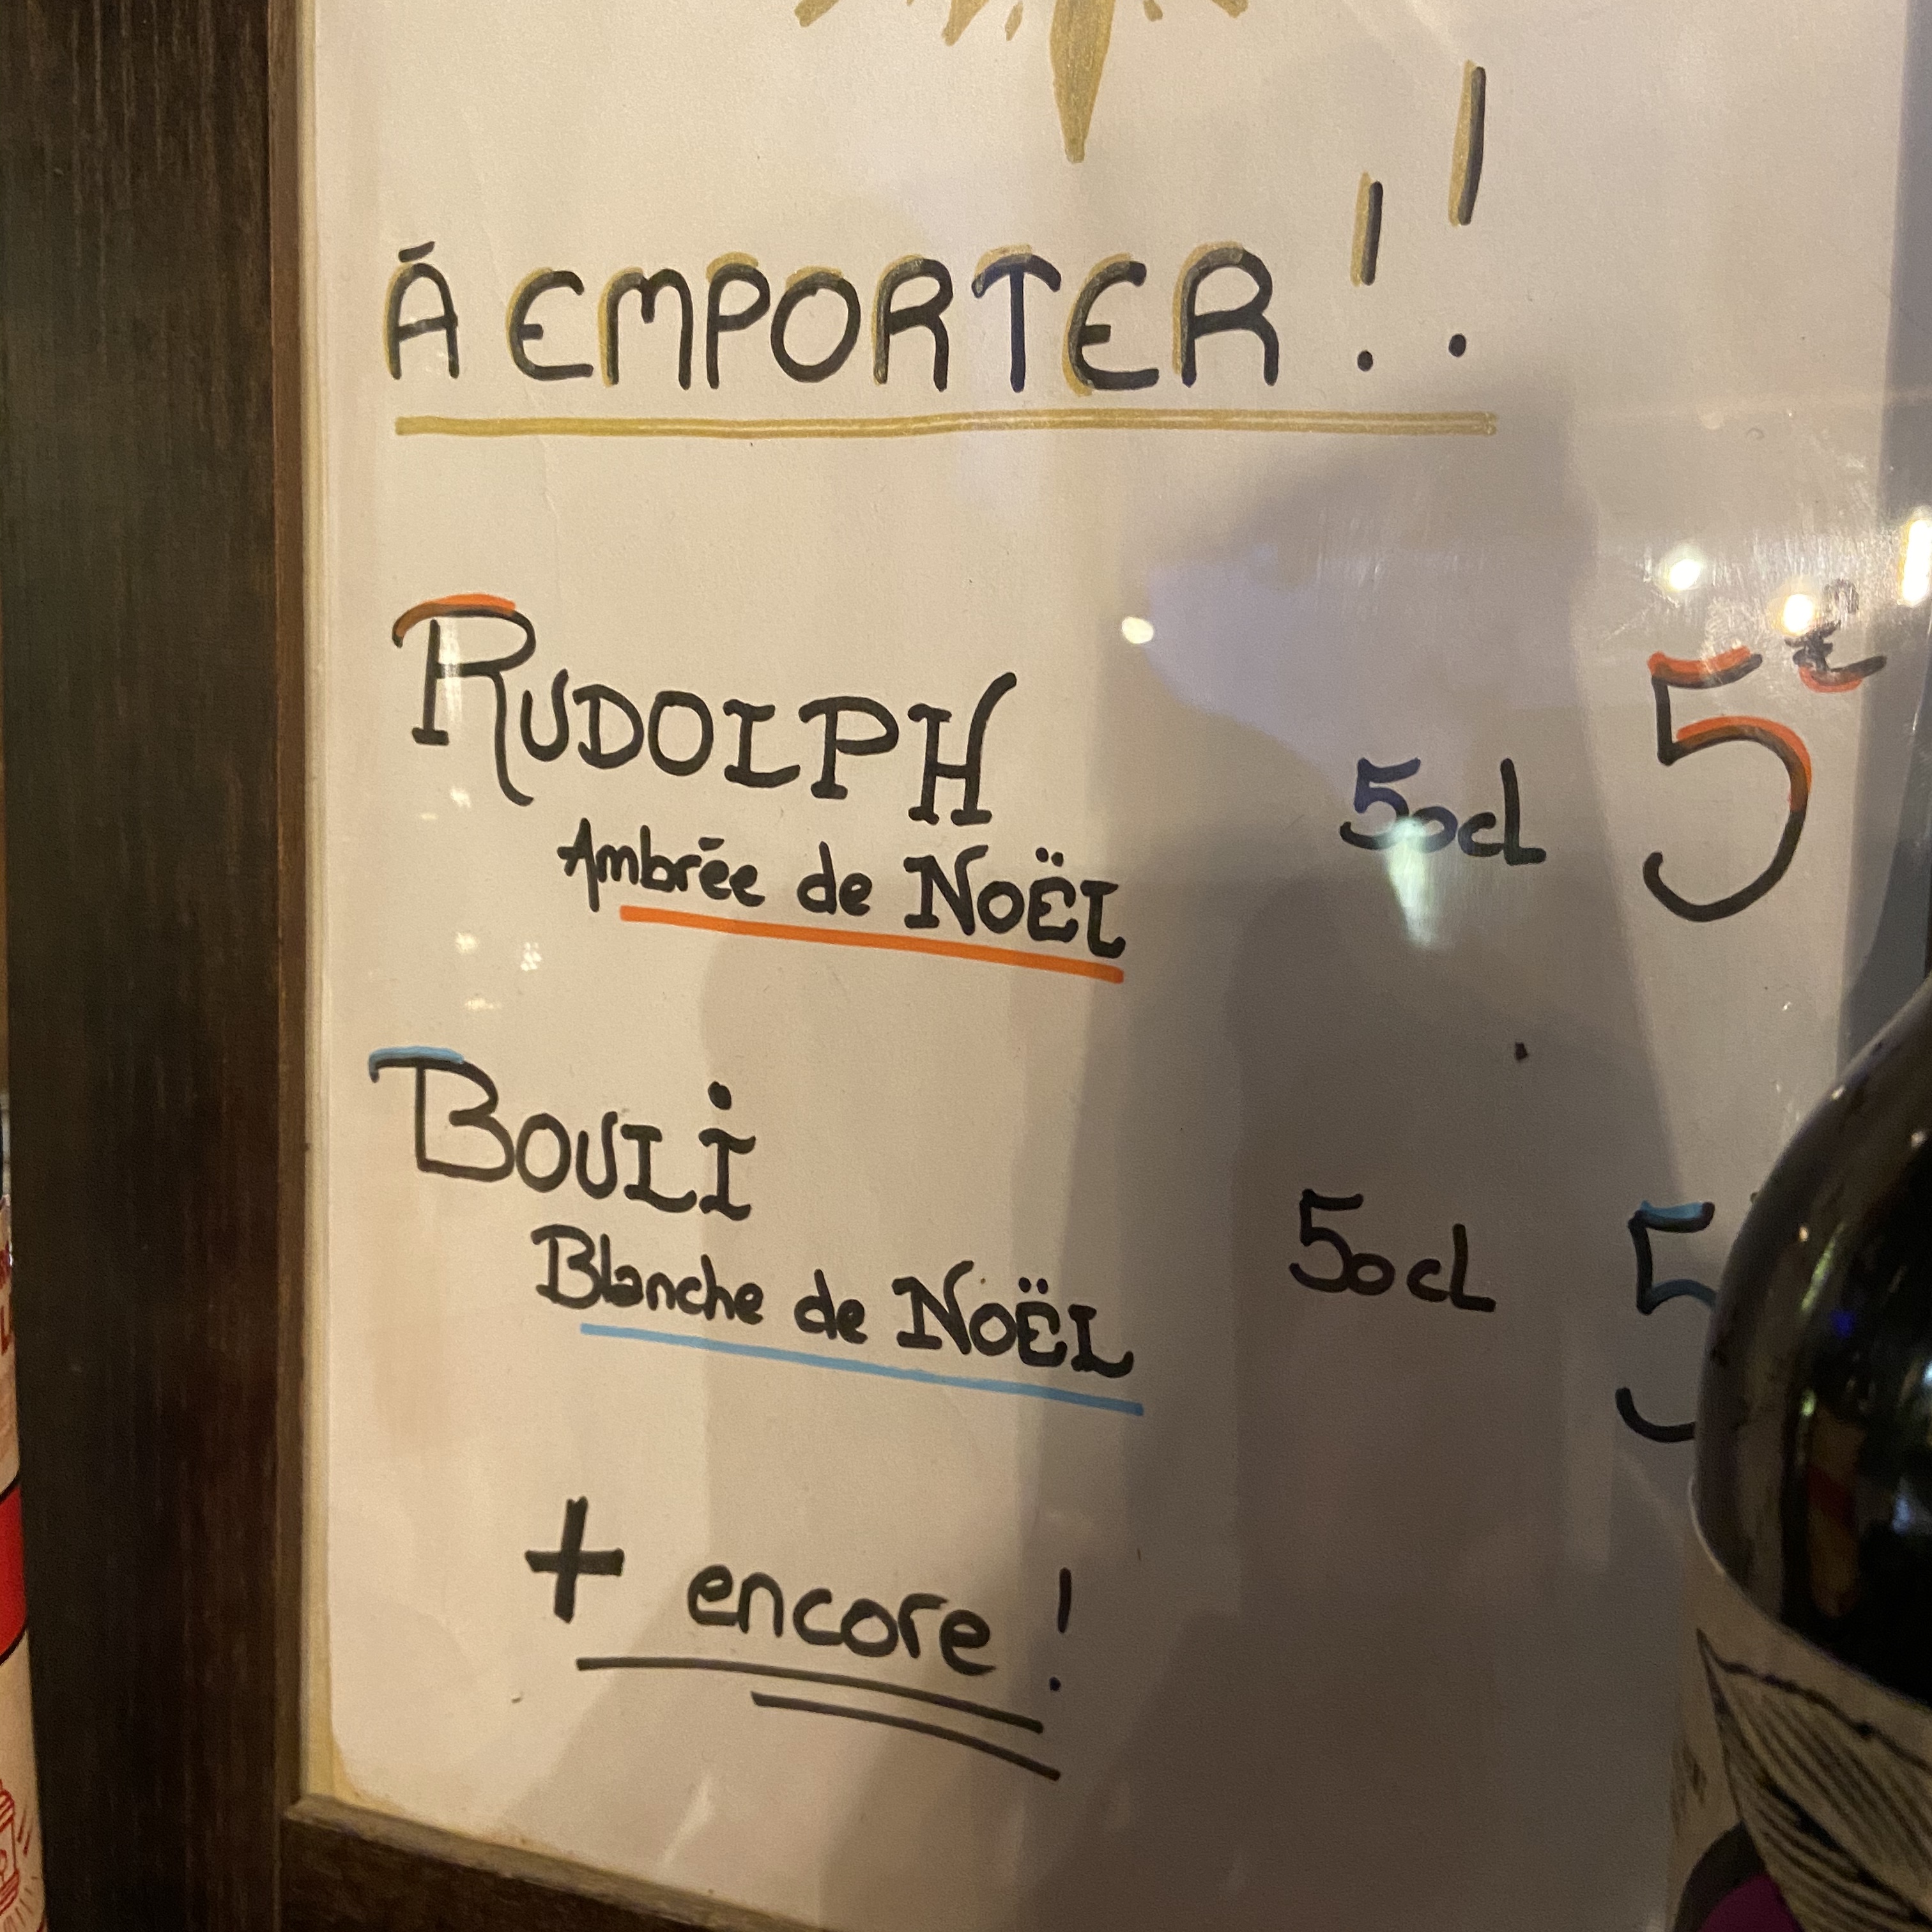 À EMPORTER !!
RUDOLPH 50cl 5€
Ambrée de NOËL
BOULI 50cl 5
Blanche de NOËL
+ encore !